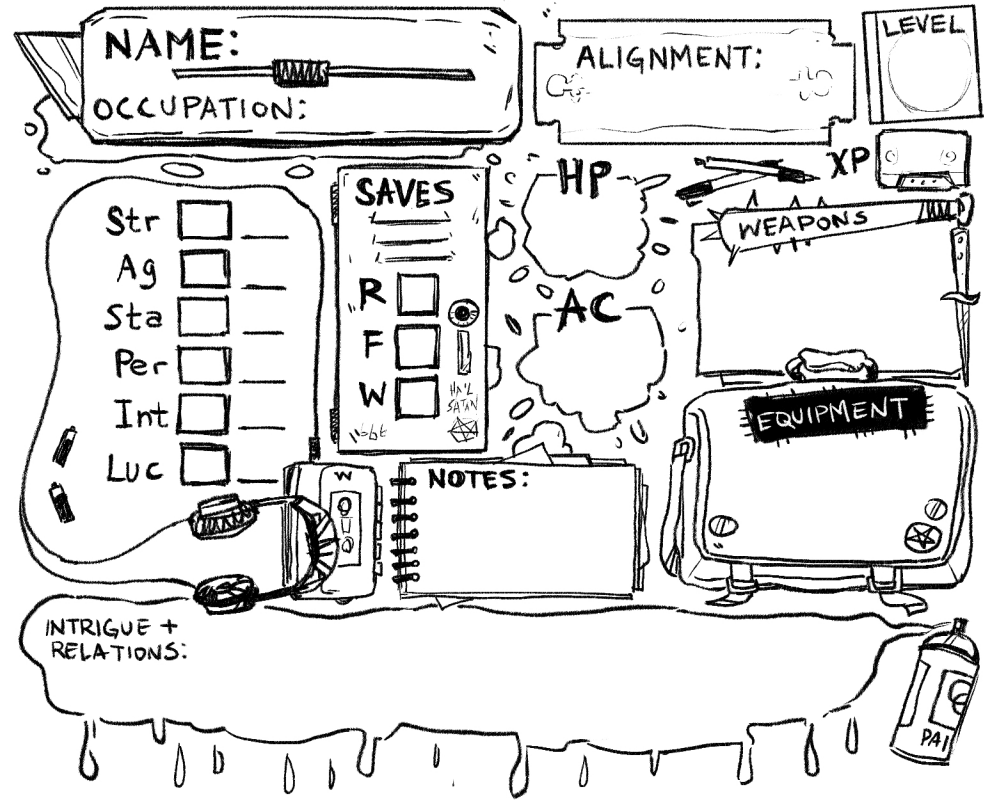 NAME:
OCCUPATION:
ALIGNMENT:
LEVEL
XP
Str
Ag
Sta
Per
Int
Luc
SAVES
R
F
W
HAIL
SATAN
666
HP
AC
WEAPONS
EQUIPMENT
W
NOTES:
INTRIGUE +
RELATIONS:
PAI